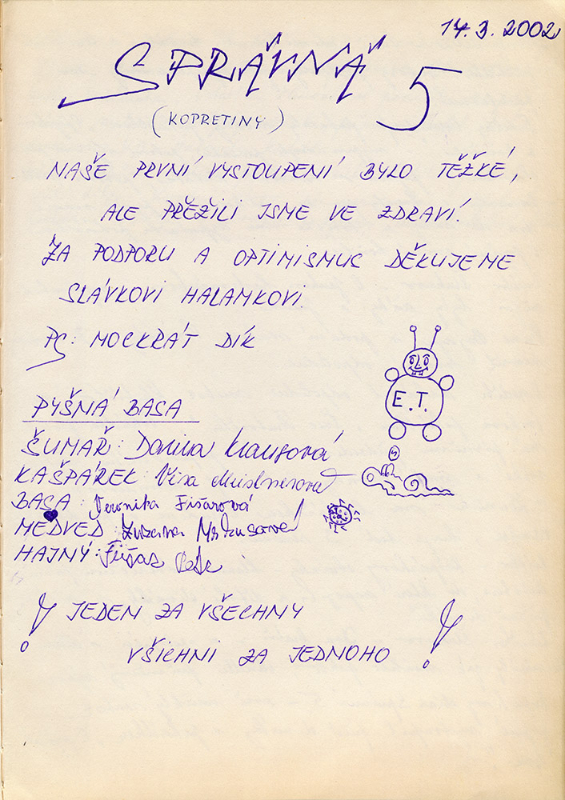 14.3.2002
SPRÁVNÁ 5
(KOPRETINY)
NAŠE PRVNÍ VYSTOUPENÍ BYLO TĚŽKÉ,
ALE PŘEŽILI JSME VE ZDRAVÍ.
ZA PODPORU A OPTIMISMUS DĚKUJEME
SLÁVKOVI HALAMKOVI.
PS: MOCKRÁT DÍK
E.T.
PYŠNÁ BASA
ŠUMAŘ: Darina Krausová
KAŠPÁREK: Věra
BASA: Veronika Fišarová
MEDVĚD: Zuzana
HAJNÝ: Fišar
! JEDEN ZA VŠECHNY
VŠICHNI ZA JEDNOHO !